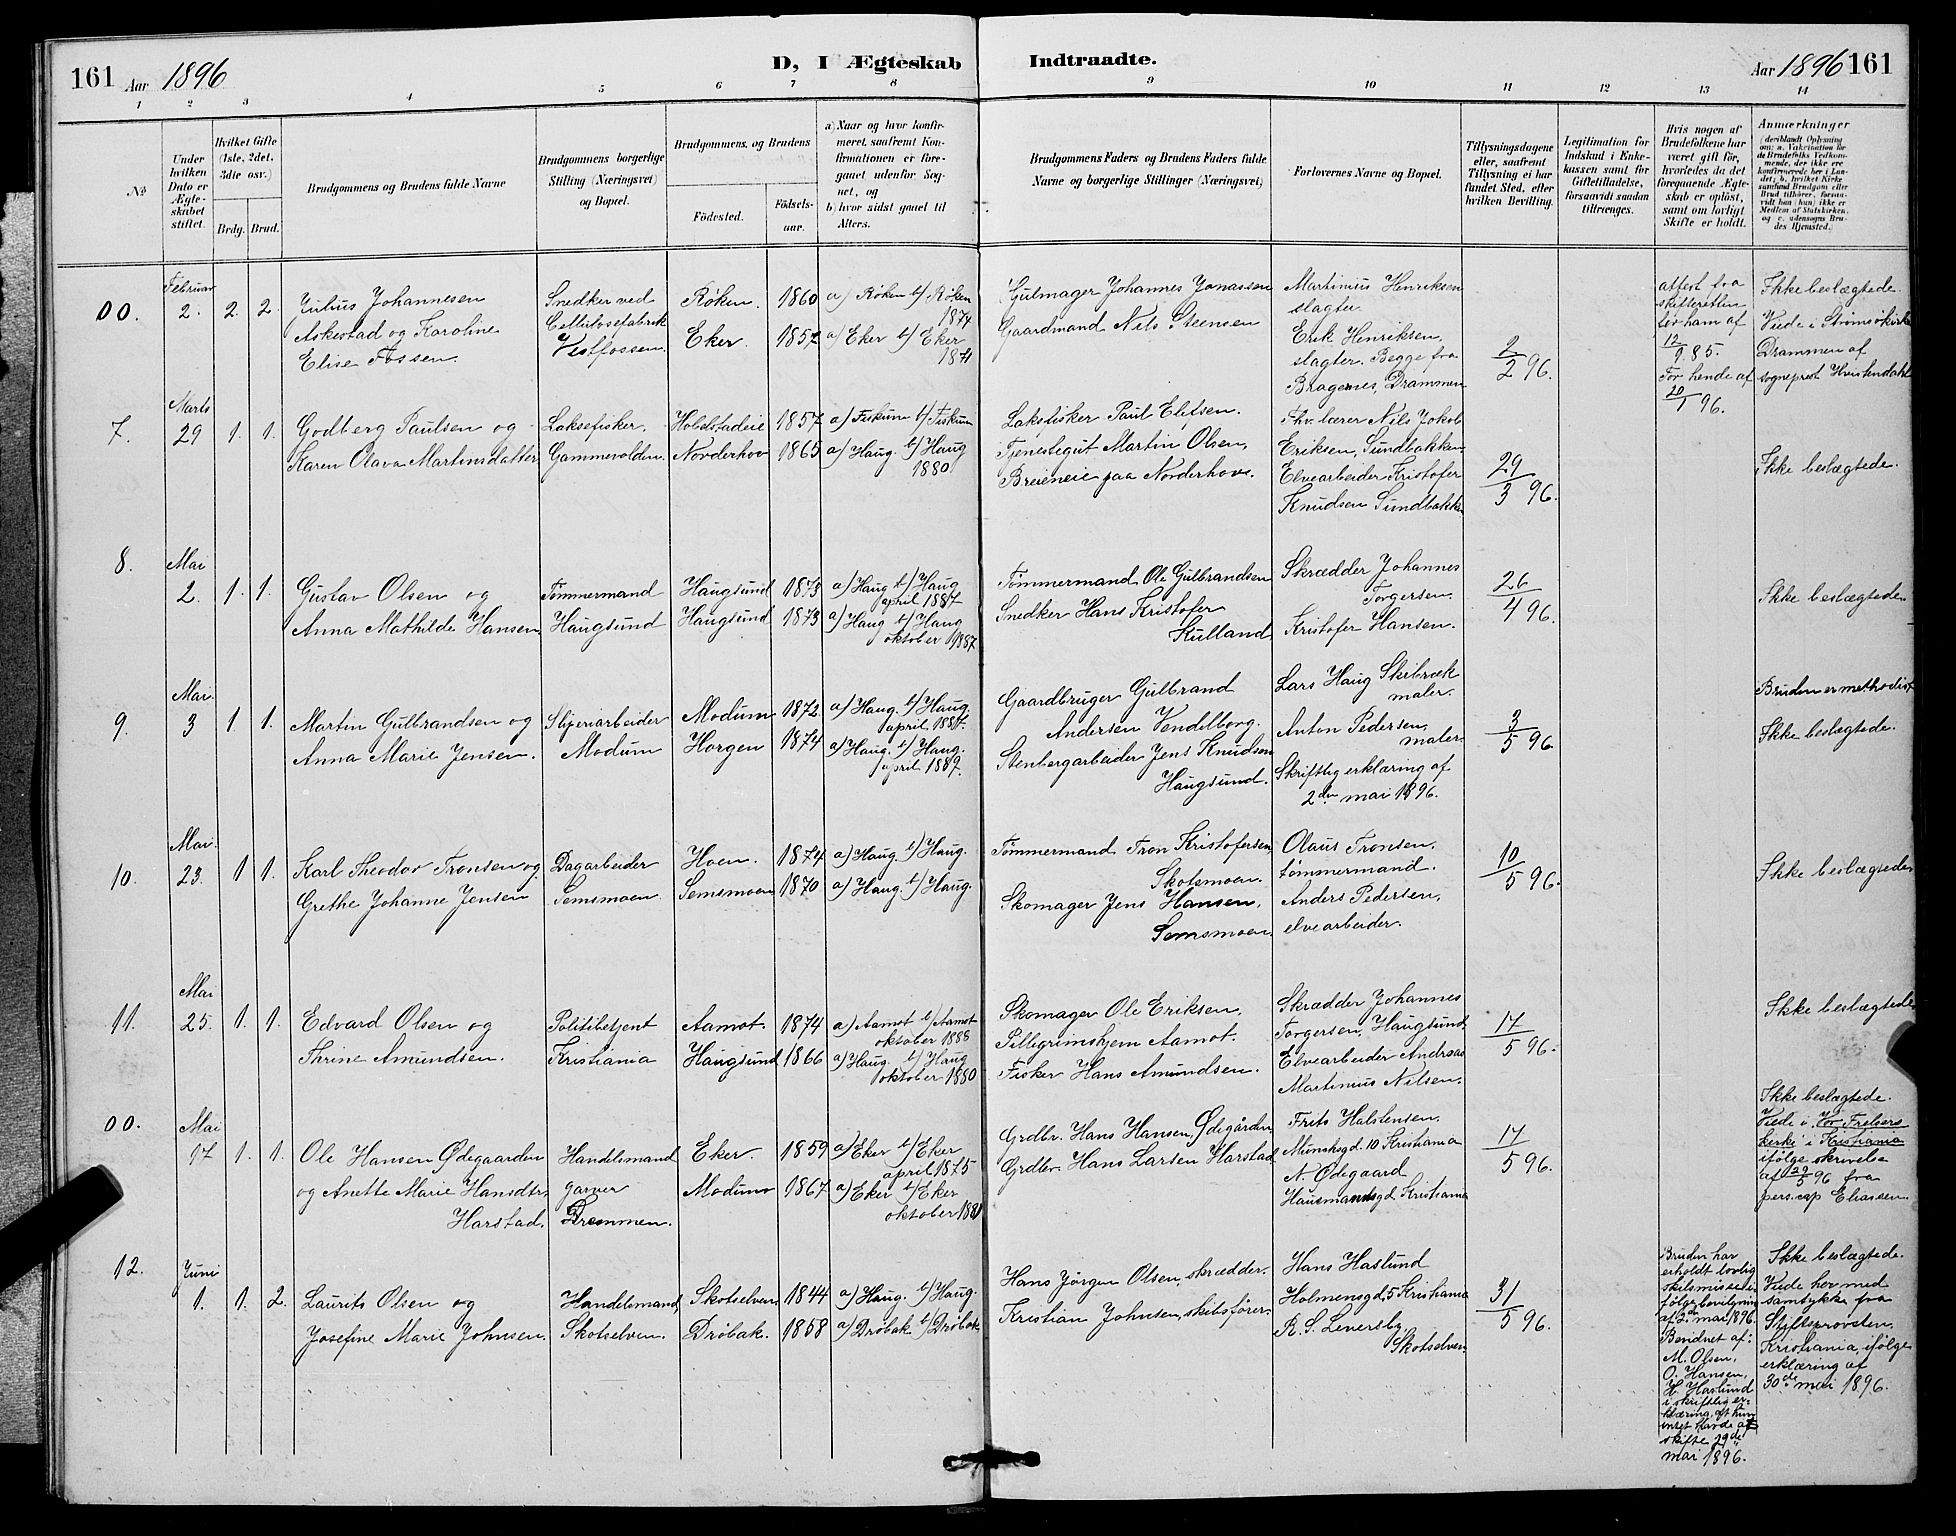 161 Aar 1896
D, I Ægteskab Indtraadte.
Aar 1896 161
1 2 3 4 5 6 7 8 9 10 11 12 13 14
No
Under hvilken Dato er Ægteskabet stiftet.
Hvilket Gifte (1ste, 2det, 3die osv.)
Brdg. Brud.
Brudgommens og Brudens fulde Navne
Brudgommens borgerlige Stilling (Næringsvei) og Bopæl.
Brudgommens og Brudens
Fødested. Fødselsaar.
a) Naar og hvor konfirmeret, saafremt Konfirmationen er foregaaet udenfor Sognet, og
b) hvor sidst gaaet til Alters.
Brudgommens Faders og Brudens Faders fulde Navne og borgerlige Stillinger (Næringsvei)
Forlovernes Navne og Bopæl.
Tillysningsdagene eller, saafremt Tillysning ei har fundet Sted, efter hvilken Bevilling.
Legitimation for Indskud i Enkekassen samt for Giftetilladelse, forsaavidt saadan tiltrænges.
Hvis nogen af Brudefolkene har været gift før, hvorledes da det foregaaende Ægteskab er opløst, samt om lovligt Skifte er holdt.
Anmærkninger
(deriblandt Oplysning om: a. Vakcination for de Brudefolks Vedkommende, der ikke ere konfirmerede her i Landet; b. hvilket Kirkesamfund Brudgom eller Brud tilhører, forsaavidt han (hun) ikke er Medlem af Statskirken, og c. udensogns Brudes Hjemsted.)
00. Februar 2. 2. 2.
Julius Johannesen
Askestad og Karoline
Elise Fossen.
Snedker ved
Cellulosefabrik
Vestfossen.
Røken. 1860 a) Røken b) Røken 1874
Eker. 1857 a) Eker b) Eker 1871
Gulmager Johannes Jonassen
Gaardmand Nils Steensen
Martinius Henriksen
slagter.
Erik Henriksen,
slagter. Begge fra
Bragernes, Drammen
2/2 96.
attest fra
skifteretten
for ham af
12/9 85.
For hende af
20/1 96.
Ikke beslægtede.
Viede i Strømsø kirke
Drammen af
sogneprest Hvistendahl
7. Marts 29 1. 1.
Godberg Paulsen og
Karen Olava Martinsdatter
Laksefisker.
Gammevolden.
Holstadeie 1857 a) Fiskum b) Fiskum
Norderhov 1865 a) Haug. b) Haug 1880
Laksfisker Paul Elifsen.
Tjenestegut Martin Olsen,
Breieneie paa Norderhov.
Fhv. lærer Nils Jokob
Eriksen, Sundbakken.
Elvearbeider Kristofer
Knudsen Sundbakken
29/3 96.
Ikke beslægtede.
8. Mai 2. 1. 1.
Gustav Olsen og
Anna Mathilde Hansen
Tømmermand
Haugsund
Haugsund 1873 a) Haug b) Haug april 1887
Haugsund 1873 a) Haug b) Haug oktober 1887
Tømmermand Ole Gulbrandsen
Snedker Hans Kristofer
Kulland
Skrædder Johannes
Torgersen.
Kristofer Hansen.
26/4 96.
Ikke beslægtede
9. Mai. 3 1 1.
Martin Gulbrandsen og
Anna Marie Jensen.
Sliperiarbeider
Modum
Modum 1872 a) Haug. b) Haug. april 1887.
Horgen 1874 a) Haug. b) Haug. april 1889.
Gaardbruger Gulbrand
Andersen Vendelborg.
Stenbergarbeider Jens Knudsen
Haugsund.
Lars Haug Skibræk
maler.
Anton Pedersen,
maler.
Skriftlig erklæring af
2den mai 1896.
3/5 96
Bruden er methodist
Ikke beslægtede.
10. Mai. 23. 1 1.
Karl Theodor Tronsen og
Grethe Johanne Jensen
Dagarbeider
Semsmoen
Hoen. 1874 a) Haug. b) Haug.
Semsmoen 1870 a) Haug. b) Haug.
Tømmermand Tron Kristofersen
Skotsmoen.
Skomager Jens Hansen,
Semsmoen.
Olaus Tronsen,
tømmermand.
Anders Pedersen,
elvearbeider.
10/5 96.
Ikke beslægtede
11. Mai 25. 1. 1.
Edvard Olsen og
Thrine Amundsen.
Politibetjent
Kristiania
Aamot. 1874 a) Aamot b) Aamot oktober 1888
Haugsund 1866 a) Haug b) Haug oktober 1880
Skomager Ole Eriksen,
Pillegrimshjem Aamot.
Fisker Hans Amundsen.
Skrædder Johannes
Torgersen, Haugsund.
Elvearbeider Andreas
Martinius Nilsen.
17/5 96.
Ikke beslægtede
00. Mai 17 1. 1.
Ole Hansen Ødegaarden
og Anette Marie Hansdtr.
Harstad.
Handelsmand
garver
Drammen.
Eker. 1859 a) Eker b) Eker april 1875
Modum 1867 a) Eker b) Eker oktober 1881
Grdbr. Hans Hansen, Ødegården
Grdbr. Hans Larsen Harstad
Frits Halstensen,
Munksgd. 10 Kristiania
N. Ødegaard
Hausmannsgd. Kristiania
17/5 96.
Ikke beslægtede.
Viede i Vor Frelsers
kirke i Kristiania
ifølge skrivelse
af 29/5 96 fra
pers. cap Eliassen.
12. Juni 1. 1. 2.
Laurits Olsen og
Josefine Marie Johnsen.
Handelsmand
Skotselven.
Skotselven 1844 a) Haug. b) Haug.
Drøbak. 1858 a) Drøbak b) Drøbak
Hans Jørgen Olsen, skrædder.
Kristian Johnsen, skibsfører.
Hans Haslund
Holmensgd. 5 Kristiania
R. S. Leversby
Skotselven
31/5 96.
Bruden har
erholdt lovlig
skilsmisse i
følge bevilgning
af 2den mai 1896.
Bevidnet af:
M. Olsen,
O. Hansen,
H. Haslund
i skriftlig er-
klæring, at hun
intet havde at
skifte 29de
mai 1896.
Ikke beslægtede.
Viede her med
samtykke fra
Stiftsprovsten,
Kristiania, ifølge
erklæring af
30de mai 1896.